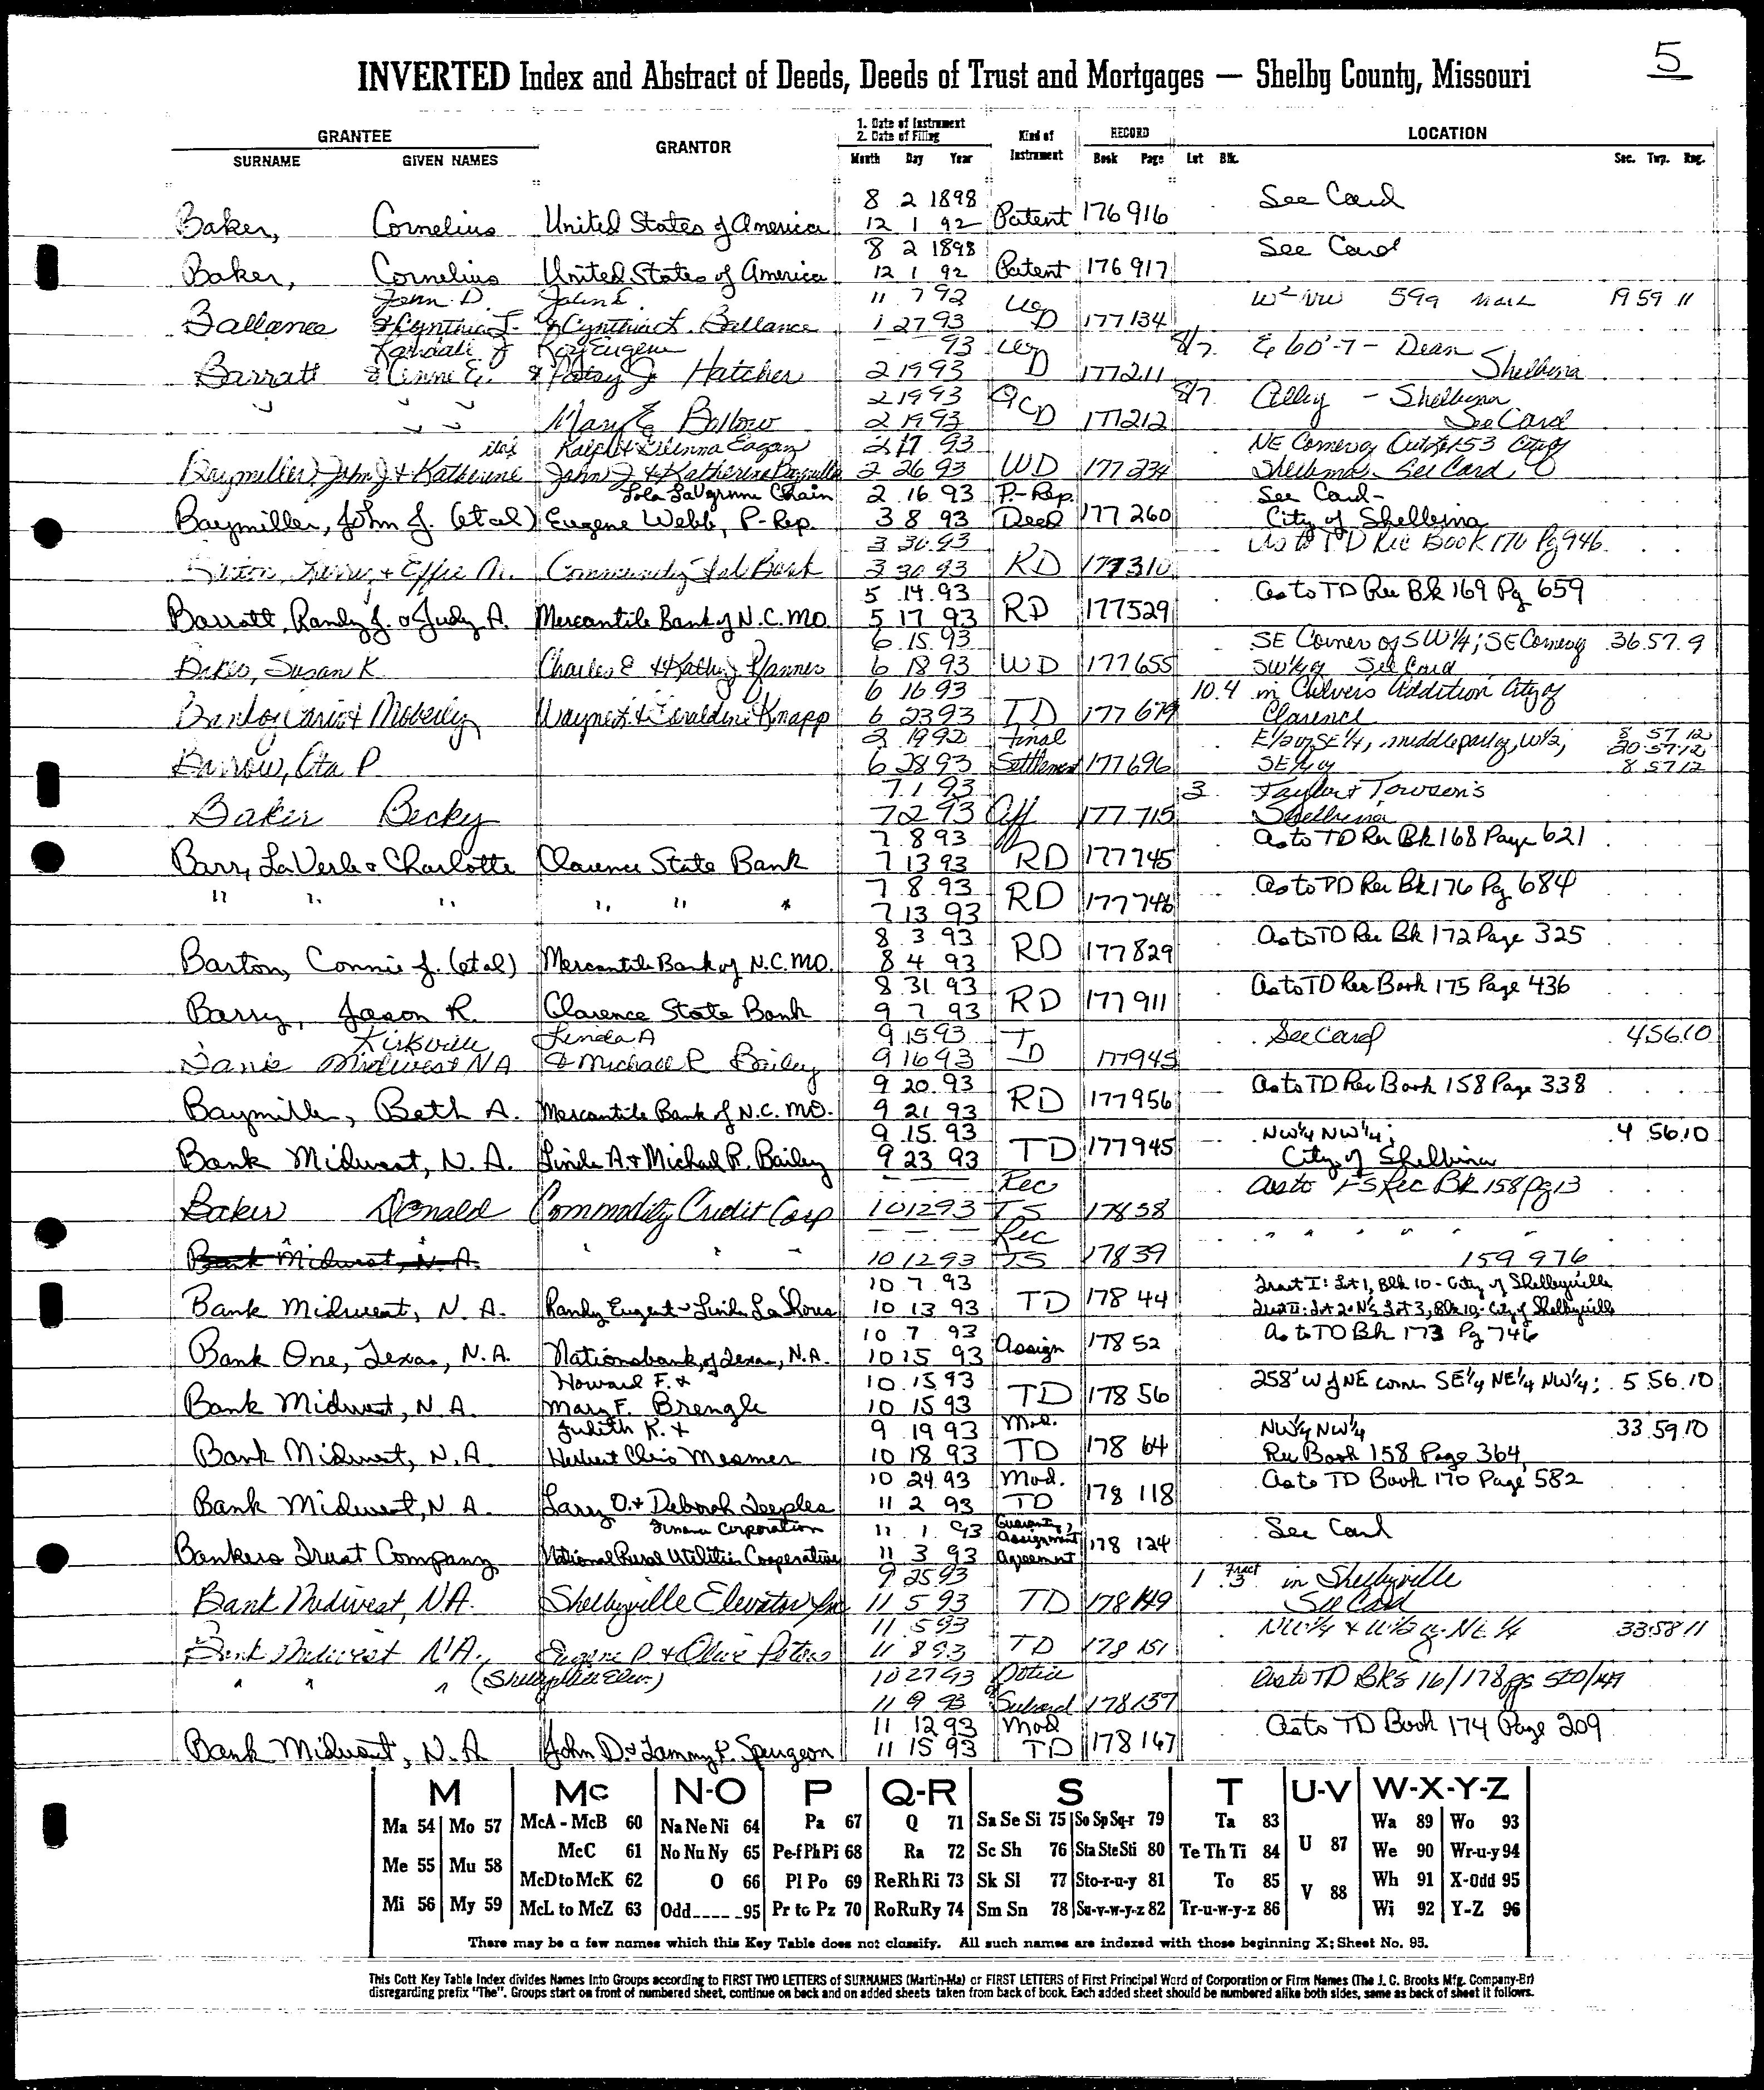 5
INVERTED Index and Abstract of Deeds, Deeds of Trust and Mortgages — Shelby County, Missouri
GRANTEE
SURNAME GIVEN NAMES
GRANTOR
1. Date of Instrument
2. Date of Filing
Month Day Year
Kind of
Instrument
RECORD
Book Page
LOCATION
Lot Blk.
Sec. Twp. Rng.
8 2 1898 See Card
Baker, Cornelius United States of America 12 1 92 Patent 176 916
8 2 1898 See Card
Baker, Cornelius United States of America 12 1 92 Patent 176 917
John D. John D. 11 7 92 W² NW 59a 19 59 11
Ballance & Cynthia L. & Cynthia L. Ballance 1 27 93 WD 177 134
Randall J Roy Eugene 93 8/7. E 60'-7- Dean
Barratt & Anne E. & Patsy J Hatcher 2 19 93 WD 177 211 Shelbina
2 19 93 8/7. Alley - Shelbina
" " " Mary E Ballow 2 19 93 QCD 177 212 See Card
etal Ralph & Glenna Eagan 2 17 93 NE Corner of Outlot 53 City of
Baymiller, John J & Katherine John J & Katherine Baymiller 2 26 93 WD 177 234 Shelbina - See Card
Lola LaVgrune Chain 2 16 93 P.-Rep. See Card-
Baymiller, John J. (et al) Eugene Webb, P-Rep. 3 8 93 Deed 177 260 City of Shelbina
3 30 93 As to TD Rec Book 170 Pg 946
Barton, Larry & Effie M. Community Fed Bank 3 30 93 RD 177 310
5 14 93 As to TD Rec Bk 169 Pg 659
Barratt, Randy J. & Judy A. Mercantile Bank of N.C. MO. 5 17 93 RD 177 529
6 15 93 SE Corner of SW 1/4; SE Corner of 36 57 9
Susan K Charles E & Kathy 6 18 93 WD 177 655 SW 1/4 of See Card
6 16 93 10.4 in Chilvers Addition City of
Moberly Wayne L & Geraldine Knapp 6 23 93 TD 177 679 Clarence
2 19 92 Final E 1/2 of SE 1/4, middle part of, W 1/2, 8 57 12
20 57 12
Barrow, Ota P 6 28 93 Settlement 177 696 SE 1/4 of 8 57 12
7 1 93 3 Taylor & Towson's
Baker Becky 7 2 93 Aff 177 715 Shelbina
7 8 93 As to TD Rec Bk 168 Page 621
Barr, LaVerle & Charlotte Clarence State Bank 7 13 93 RD 177 745
7 8 93 As to TD Rec Bk 176 Pg 684
" " " " " " 7 13 93 RD 177 746
8 3 93 As to TD Rec Bk 172 Page 325
Barton, Connie J. (et al) Mercantile Bank of N.C. MO. 8 4 93 RD 177 829
8 31 93 As to TD Rec Book 175 Page 436
Barry, Jason R. Clarence State Bank 9 7 93 RD 177 911
Kirksville Linda A 9 15 93 See Card 4 56 10
Bank Midwest NA & Michael R Bailey 9 16 93 TD 177 945
9 20 93 As to TD Rec Book 158 Page 338
Baymiller, Beth A. Mercantile Bank of N.C. MO. 9 21 93 RD 177 956
9 15 93 NW 1/4 NW 1/4; 4 56 10
Bank Midwest, N.A. Linda A & Michael R. Bailey 9 23 93 TD 177 945 City of Shelbina
Rec As to FS Rec Bk 158 Pg 13
Baker Donald Commodity Credit Corp 10 12 93 FS 178 38
Rec " " " " "
Bank Midwest, N.A. " " " 10 12 93 FS 178 39 159 976
10 7 93 Tract I: Lot 1, Blk 10 - City of Shelbyville
Bank Midwest, N.A. Randy Eugene & Linda La 10 13 93 TD 178 44 Tract II: Lot 2 & N 1/2 Lot 3, Blk 10 - City of Shelbyville
10 7 93 As to TD Bk 173 Pg 746
Bank One, Texas, N.A. Nationsbank, of Texas, N.A. 10 15 93 Assign 178 52
Howard F. & 10 15 93 258' W of NE corner SE 1/4 NE 1/4 NW 1/4; 5 56 10
Bank Midwest, N.A. Mary F. Brengle 10 15 93 TD 178 56
Judith K. & 9 19 93 Mod. NW 1/4 NW 1/4 33 59 10
Bank Midwest, N.A. Herbert Chris Mesmer 10 18 93 TD 178 64 Rec Book 158 Page 364
10 24 93 Mod. As to TD Book 170 Page 582
Bank Midwest, N.A. Larry O. & Deborah Teeples 11 2 93 TD 178 118
Finance Corporation 11 1 93 Guaranty, See Card
Assignment
Bankers Trust Company National Rural Utilities Cooperative 11 3 93 Agreement 178 124
9 25 93 1 Tract 3 in Shelbyville
Bank Midwest, NA. Shelbyville Elevator Inc 11 5 93 TD 178 149 See Card
11 5 93 NW 1/4 & W 1/2 of NE 1/4 33 58 11
Bank Midwest NA. Eugene D. & Olive Peters 11 8 93 TD 178 151
" " " (Shelbyville Elev.) 10 27 93 Notice As to TD Bks 16/178 pgs 520/149
11 9 93 of Subord 178 157
11 12 93 Mod As to TD Book 174 Page 209
Bank Midwest, N.A John D. & Tammy P. Spurgeon 11 15 93 TD 178 167
M Mc N-O P Q-R S T U-V W-X-Y-Z
Ma 54 Mo 57 McA - McB 60 Na Ne Ni 64 Pa 67 Q 71 Sa Se Si 75 So Sp Sq-r 79 Ta 83 Wa 89 Wo 93
Me 55 Mu 58 McC 61 No Nu Ny 65 Pe-f Ph Pi 68 Ra 72 Sc Sh 76 Sta Ste Sti 80 Te Th Ti 84 U 87 We 90 Wr-u-y 94
McD to McK 62 O 66 Pl Po 69 Re Rh Ri 73 Sk Sl 77 Sto-r-u-y 81 To 85 V 88 Wh 91 X-Odd 95
Mi 56 My 59 McL to McZ 63 Odd____ -95 Pr to Pz 70 Ro Ru Ry 74 Sm Sn 78 Su-v-w-y-z 82 Tr-u-w-y-z 86 Wi 92 Y-Z 96
There may be a few names which this Key Table does not classify. All such names are indexed with those beginning X; Sheet No. 95.
This Cott Key Table Index divides Names Into Groups according to FIRST TWO LETTERS of SURNAMES (Martin-Ma) or FIRST LETTERS of First Principal Word of Corporation or Firm Names (The J. C. Brooks Mfg. Company-Br)
disregarding prefix "The". Groups start on front of numbered sheet, continue on back and on added sheets taken from back of book. Each added sheet should be numbered alike both sides, same as back of sheet it follows.